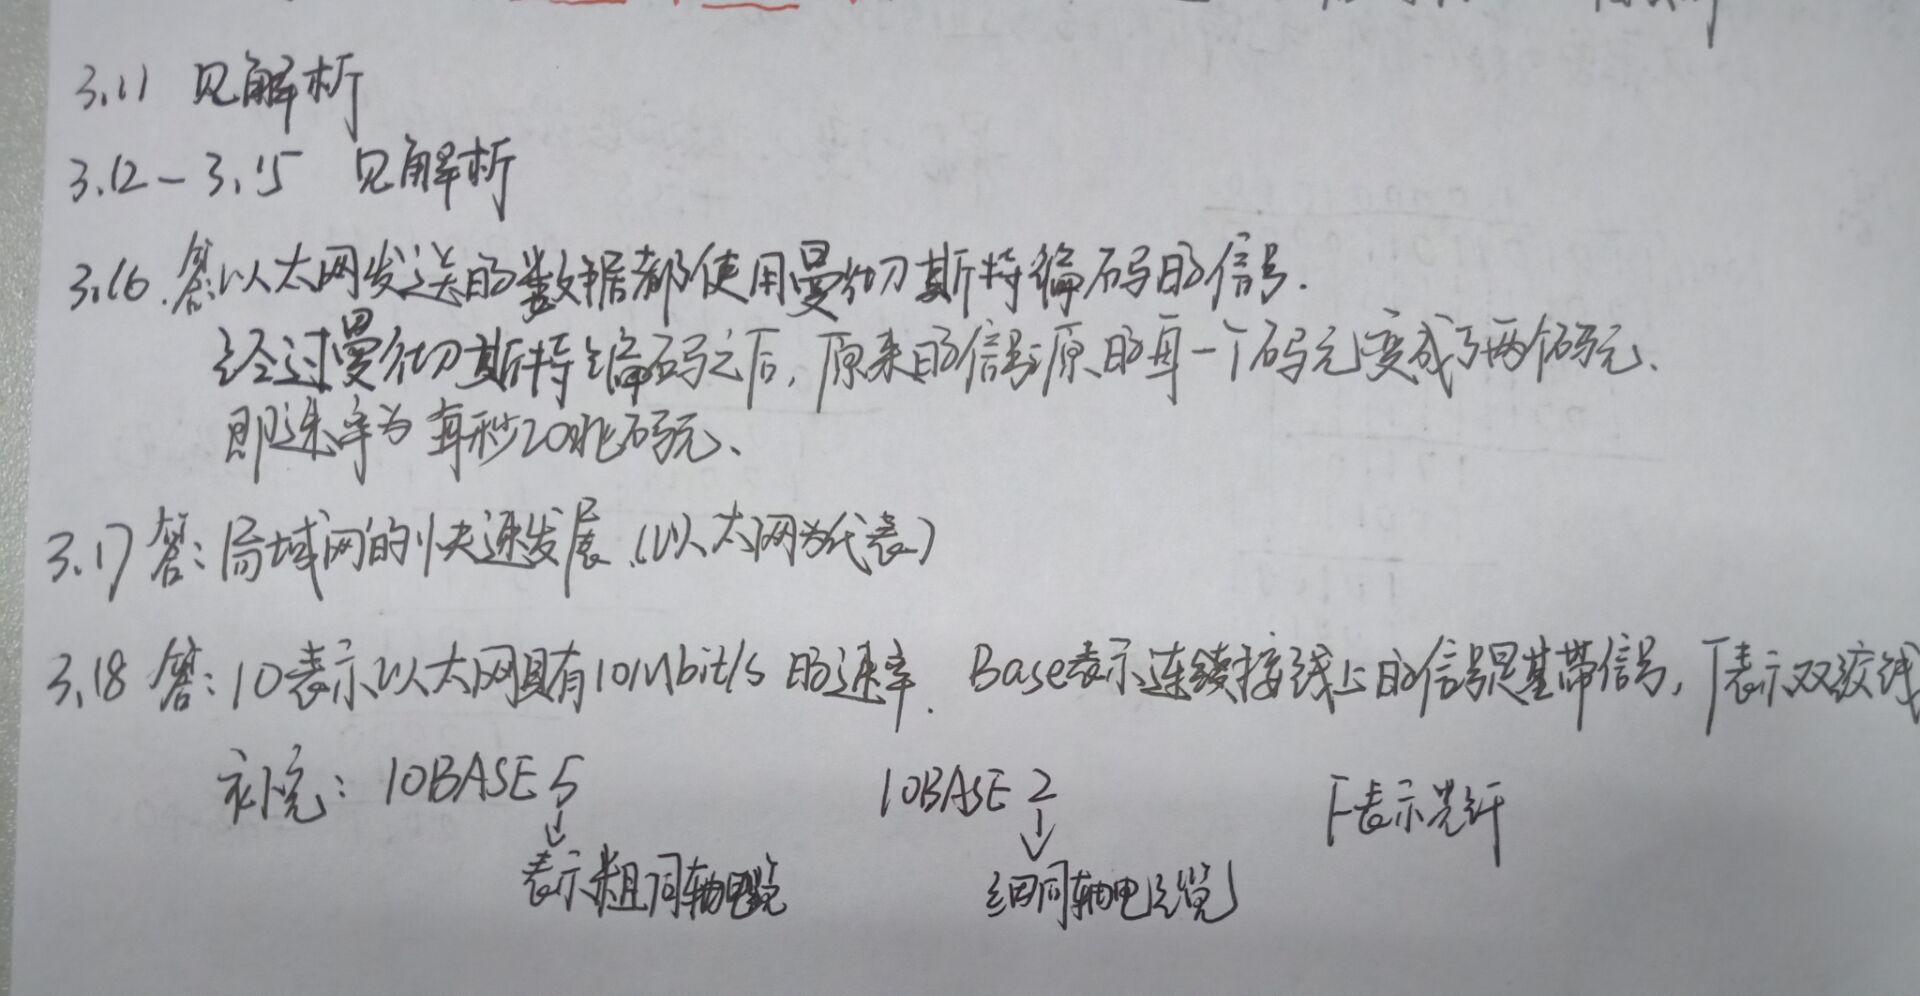 3.11 见解析
3.12-3.15 见解析
3.16.答:以太网发送的数据都使用曼彻斯特编码的信号.
经过曼彻斯特编码之后,原来的信号原的每一个码元变成了两个码元.
即速率为每秒20兆码元、
3.17答:局域网的快速发展.(以太网为代表)
3.18答:10表示以太网具有10Mbit/s的速率. Base表示连接线上的信号是基带信号,T表示双绞线
补充:10BASE5 10BASE2 F表示光纤
表示粗同轴电缆 细同轴电缆